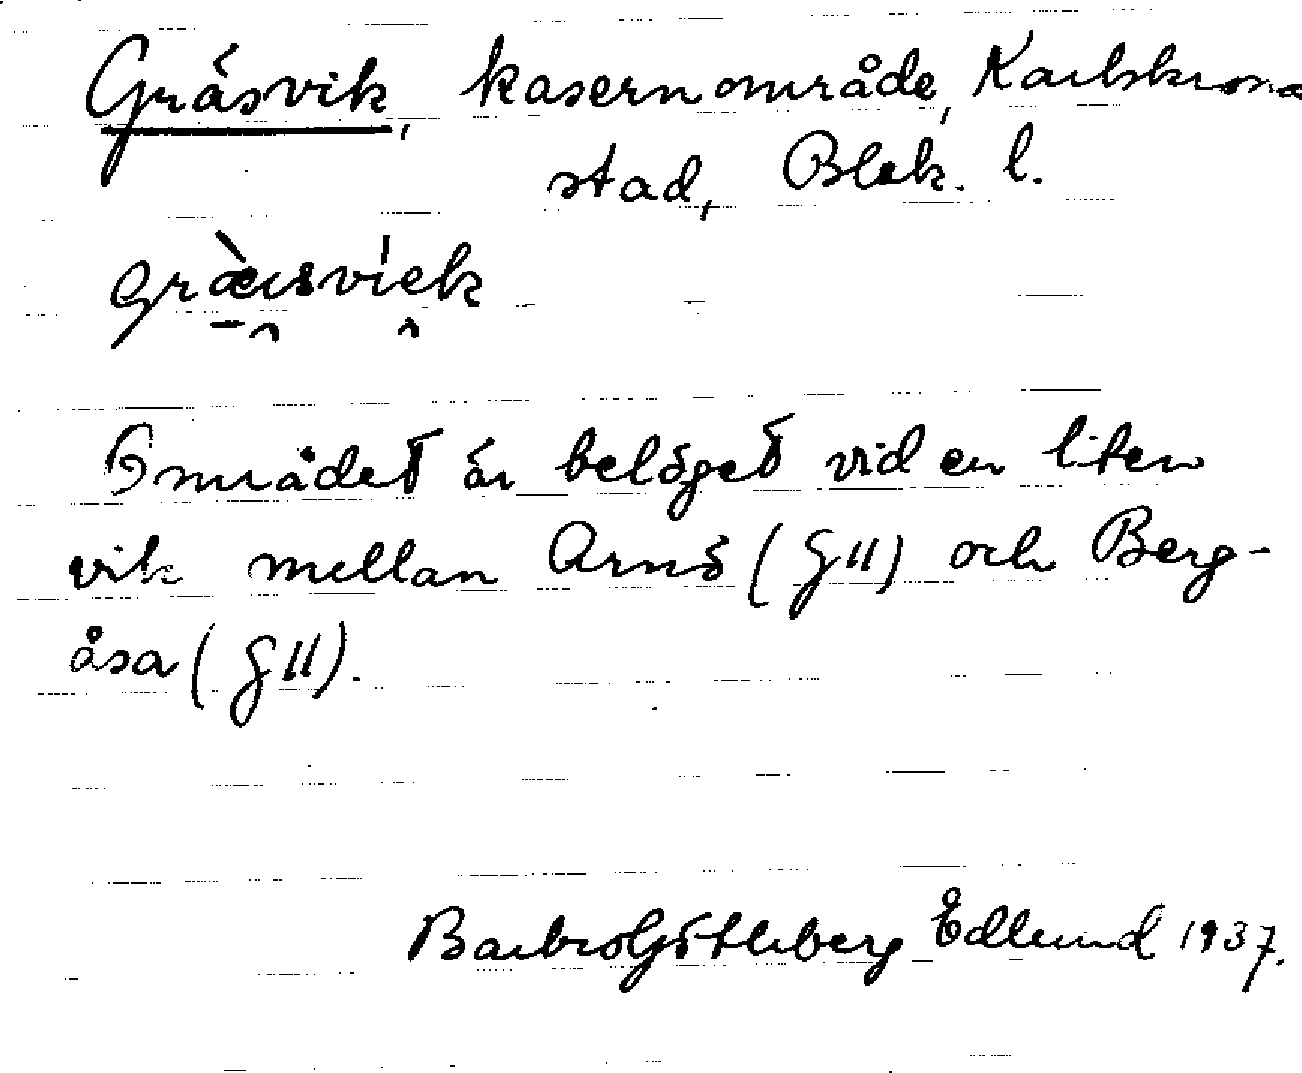 Gräsvik, kasernområde, Karlskrona
stad, Blek. l.
græusviek
Området är beläget vid en liten
vik mellan Arnö (G II) och Berg-
åsa (G II).
Barbro Götheberg Edlund 1937.